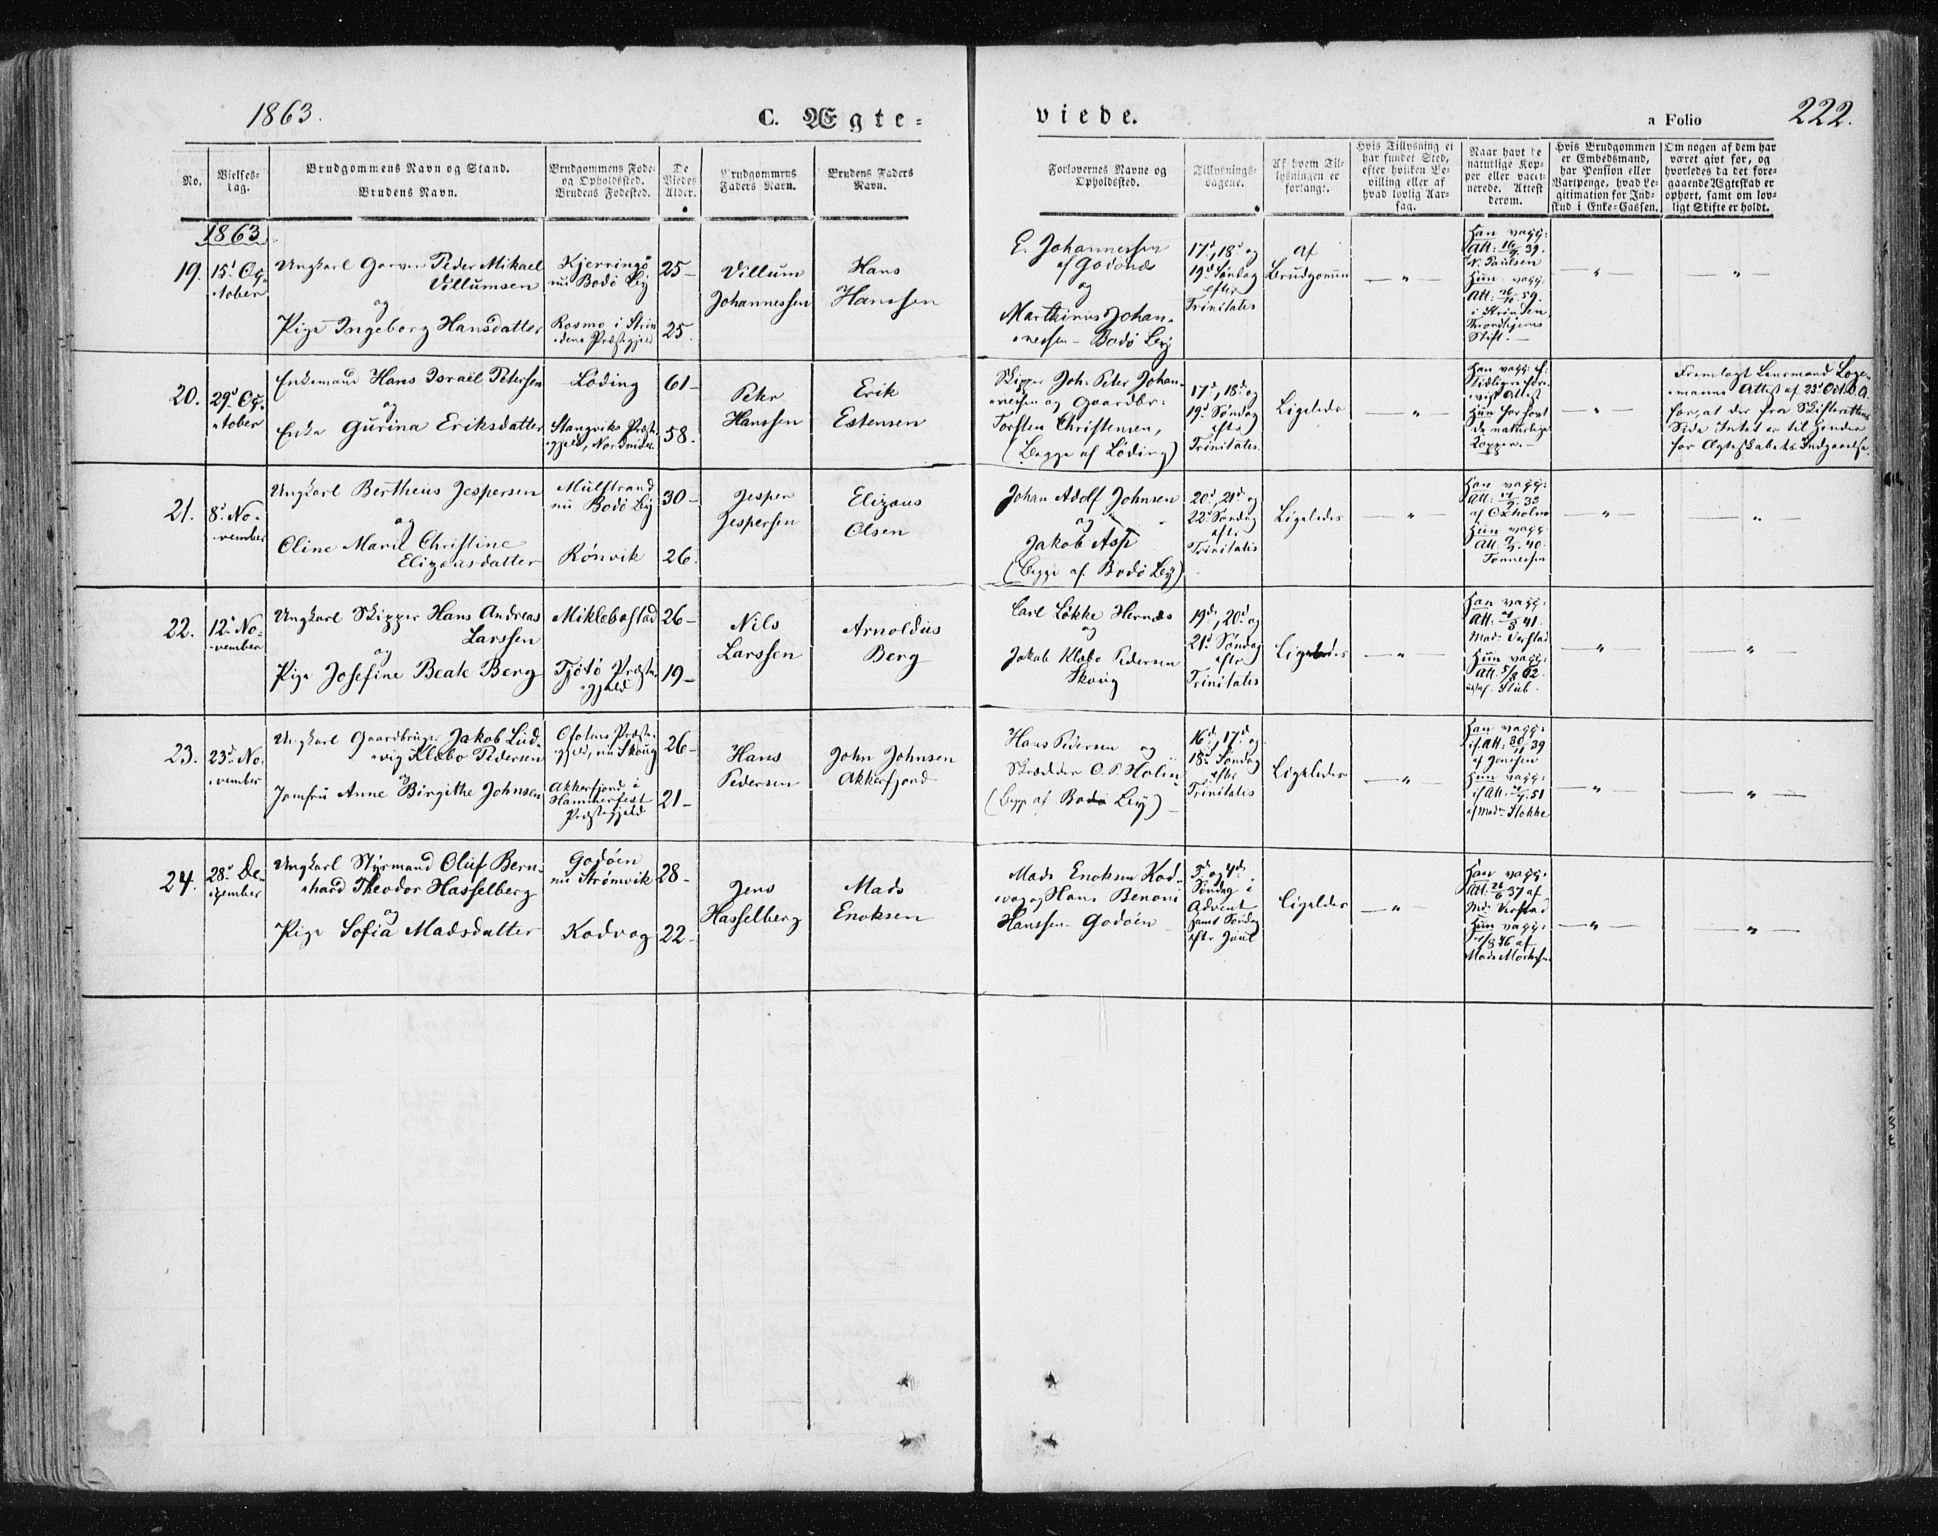 1863.
C. Ægte-
viede.
a Folio
222.
No.
Vielses-
dag.
Brudgommens Navn og Stand.
Brudens Navn.
Brudgommens Føde-
og Opholdssted.
Brudens Fødested.
De
Viedes
Alder.
Brudgommens
Faders Navn.
Brudens Faders
Navn.
Forlovernes Navne og
Opholdssted.
Tillysnings-
dagene.
Af hvem Til-
lysningen er
forlangt.
Hvis Tillysning ei
har fundet Sted,
efter hvilken Be-
villing eller af
hvad lovlig Aar-
sag.
Naar havt de
naturlige Kop-
per eller vacci-
nerede. Attest
derom.
Hvis Brudgommen
er Embedsmand,
har Pension eller
Vartpenge, hvad Le-
gitimation for Ind-
skud i Enke-Cassen.
Om nogen af dem har
været gift før, og
hvorledes da det fore-
gaaende Ægteskab er
ophørt, samt om lov-
ligt Skifte er holdt.
1863
19.
15d Oc-
tober
Ungkarl Garver Peder Mikael
Villumsen
og
Pige Ingeborg Hansdatter
Kjerringö
nu Bodö By
Rosmo i Strin
dens Præstegjeld
25-
25.
Villum
Johannessen
Hans
Hanssen
E. Johannessen
af Godönes
og
Marthinus Johan-
nessen - Bodö By
17d, 18d og
19d Söndag
efter
Trinitatis
af
Brudgommen
— „ —
Han vacc:
Att: 16/9 39.
N. Paulsen
Hun vacc:
Att: 26/10 59.
i Strinden
Throndhjems
Stift. -
— „ —
— „ —
20.
29d Oc-
tober
Enkemand Hans Israel Petersen
og
Enke Gurina Eriksdatter
Löding
Stangviks Præste
gjeld, Nordmöre
61-
58.
Peter
Hanssen
Erik
Estensen
Skipper Joh. Peter Johan-
nessen og Gaardbr:
Torsten Christensen,
(Begge af Löding)
17d, 18d og
19d Söndag
efter
Trinitatis.
Ligeledes
— „ —
Han vacc: ef:
tidligere fore-
vist Attest
Hun har havt
de naturlige
Kopper. -
— „ —
Fremlagt Lensmand Loge-
manns Attest af 23d Oct. d. A.
for, at der fra Skifterettens
Side Intet er til Hinder
for Ægteskabets Indgaaelse.
21.
8d No-
vember
Ungkarl Bertheus Jespersen
og
Oline Marie Christine
Elizeusdatter
Mulstrand
nu Bodö By
Rönvik
30-
26.
Jesper
Jespersen
Elizeus
Olsen
Johan Adolf Johnsen
og
Jakob Asp
(Begge af Bodö By)
20d, 21d og
22d Söndag
efter
Trinitatis
Ligeledes
— „ —
Han vacc:
af Oxholm
Hun vacc:
Tönnessen
— „ —
— „ —
22.
12d No-
vember
Ungkarl Skipper Hans Andreas
Larssen
og
Pige Josefine Beate Berg
Miklebostad
Tjötö Præste
gjeld
26-
19-
Nils
Larssen
Arnoldus
Berg
Carl Lökke Hernæs
og
Jakob Klæbo Pedersen
Skoug
19d, 20d og
21d Söndag
efter
Trinitatis
Ligeledes
— „ —
Han vacc:
Mads Verstad
Hun vacc:
Att. 5/8 62.
Stub.
— „ —
— „ —
23.
23d No-
vember
Ungkarl Gaardbruger Jakob Lud-
vig Klæbo Pedersen
og
Jomfru Anne Birgithe Johnsen
Ofotens Præste-
gjeld, nu Skoug
Akkerfjord i
Hammerfest
Præstegjeld
26-
21-
Hans
Pedersen
John Johnsen
Akkerfjord
Hans Pedersen og
Skrædder O. P. Holm
(Begge af Bodö By) -
16d, 17d og
18d Söndag
efter
Trinitatis
Ligeledes
— „ —
Han vacc:
if. Att: 30/11 39
af Jentsen
Hun vacc:
if Att.
af Mad. Stokke
— „ —
— „ —
24.
28d De-
cember
Ungkarl Styrmand Oluf Bern-
hard Theodor Hasselberg
og
Pige Sofia Madsdatter
Godöen
nu Strömvik
Kodvog
28-
22-
Jens
Hasselberg
Mads
Enoksen
Mads Enoksen Kod-
vog og Hans Benoni
Hanssen - Godöen
3d og 4d
Söndag i
Advent
samt Söndag
efter Juul
Ligeledes
— „ —
Han vacc:
Att: 26/6 37 af
Verstad
Hun vacc:
— „ —
— „ —